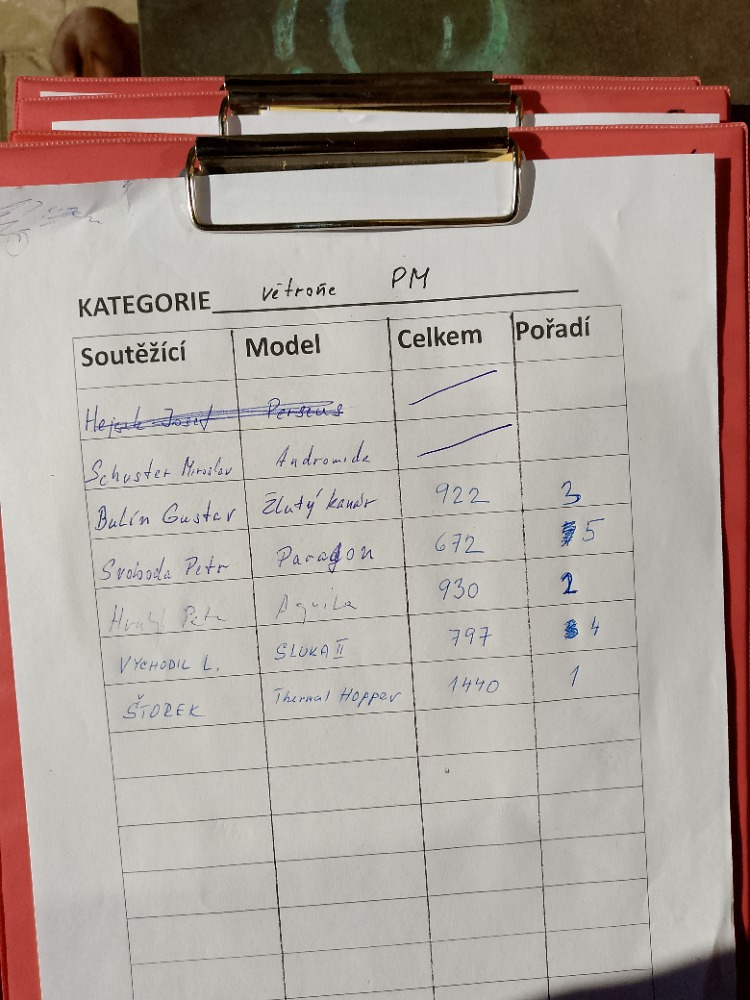 KATEGORIE větroňe PM
Soutěžící Model Celkem Pořadí
Hejuk Josef Perseus
Schuster Miroslav Andromeda
Balín Gustav Žlutý kanár 922 3
Svoboda Petr Paragon 672 5
Petr Aquila 930 2
VYCHODIL L. SLUKA II 797 4
ŠTOREK Thermal Hopper 1440 1